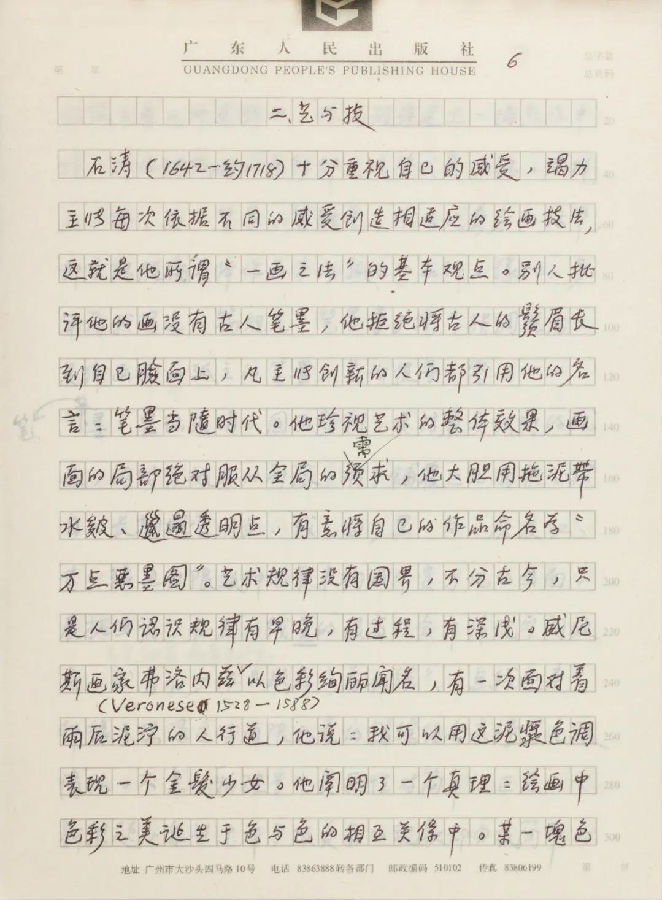 广东人民出版社
GUANGDONG PEOPLE'S PUBLISHING HOUSE
6
二、艺与技
石涛(1642—约1718)十分重视自己的感受,竭力
主张每次依据不同的感受创造相适应的绘画技法,
这就是他所谓“一画之法”的基本观点。别人批
评他的画没有古人笔墨,他拒绝将古人的鬚眉长
到自己脸面上,凡主张创新的人们都引用他的名
言:笔墨当随时代。他珍视艺术的整体效果,画
需
面的局部绝对服从全局的须求,他大胆用拖泥带
水皴、邋遢透明点,有意将自己的作品命名为“
万点恶墨图”。艺术规律没有国界,不分古今,只
是人们认识规律有早晚,有过程,有深浅。威尼
斯画家弗洛内兹以色彩绚丽闻名,有一次面对着
(Veronese 1528—1588)
雨后泥泞的人行道,他说:我可以用这泥浆色调
表现一个金髮少女。他阐明了一个真理:绘画中
色彩之美诞生于色与色的相互关系中。某一块色
地址 广州市大沙头四马路10号 电话 83863888转各部门 邮政编码 510102 传真 83806199